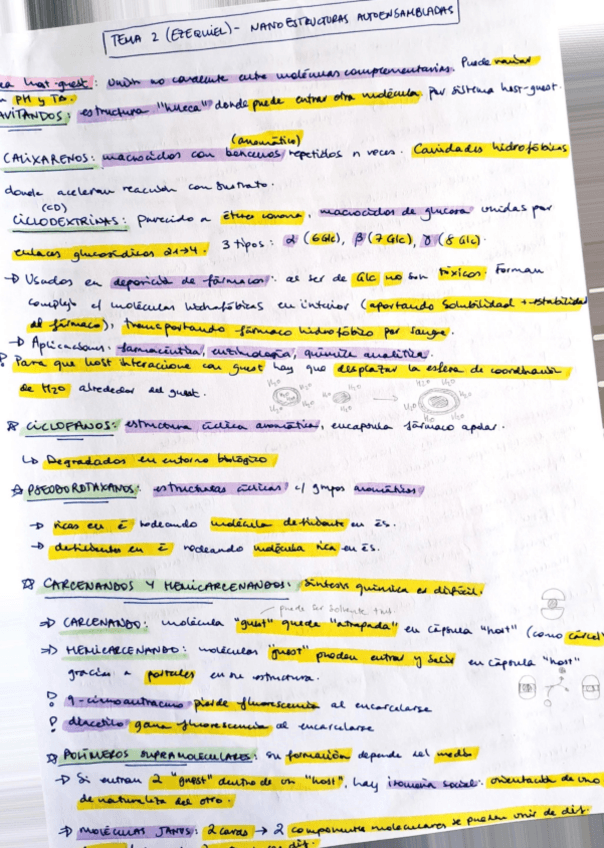 TEMA 2 (EZEQUIEL) - NANOESTRUCTURAS AUTOENSAMBLADAS
host-guest: Unión no covalente entre moléculas complementarias. Puede variar
PH y Tª.
AVITANDOS: estructura "hueca" donde puede entrar otra molécula por sistema host-guest.
(aromático)
CALIXARENOS: macrociclos con bencenos repetidos n veces. Cavidades hidrofóbicas
donde aceleran reacción con sustrato.
(CD)
CICLODEXTRINAS: Parecido a éter corona, macrociclos de glucosa unidas por
enlaces glucosídicos α1→4. 3 tipos: α (6 Glc), β (7 Glc), γ (8 Glc).
→ Usados en deposición de fármacos: al ser de Glc no son tóxicos. Forman
complejo c/ moléculas hidrofóbicas en interior (aportando solubilidad + estabilidad
al fármaco), transportando fármaco hidrofóbico por sangre.
→ Aplicaciones: farmacéutica, enzimología, química analítica.
Para que host interaccione con guest hay que desplazar la esfera de coordinación
de H2O alrededor del guest.
H2O H2O H2O H2O H2O
H2O H2O H2O
CICLOFANOS: estructura cíclica aromática, encapsula fármaco apolar.
↳ Degradados en entorno biológico
PSEUDOROTAXANOS: estructuras cíclicas c/ grupos aromáticos
→ ricas en ē rodeando molécula deficiente en ēs.
→ deficientes en ē rodeando molécula rica en ēs.
CARCERANDOS Y HEMICARCERANDOS: Síntesis química es difícil.
puede ser solvente
⇒ CARCERANDO: molécula "guest" queda "atrapada" en cápsula "host" (como cárcel
⇒ HEMICARCERANDO: moléculas "guest" pueden entrar y salir en cápsula "host"
gracias a portales en su estructura.
! 9-cianoantraceno pierde fluorescencia al encarcelarse
! diacetilo gana fluorescencia al encarcelarse
POLÍMEROS SUPRAMOLECULARES: su formación depende del medio
→ Si entran 2 "guest" dentro de un "host", hay isomería social: orientación de uno
de naturaleza del otro.
⇒ MOLÉCULAS JANUS: 2 caras → 2 componentes moleculares se puedan unir de dif.